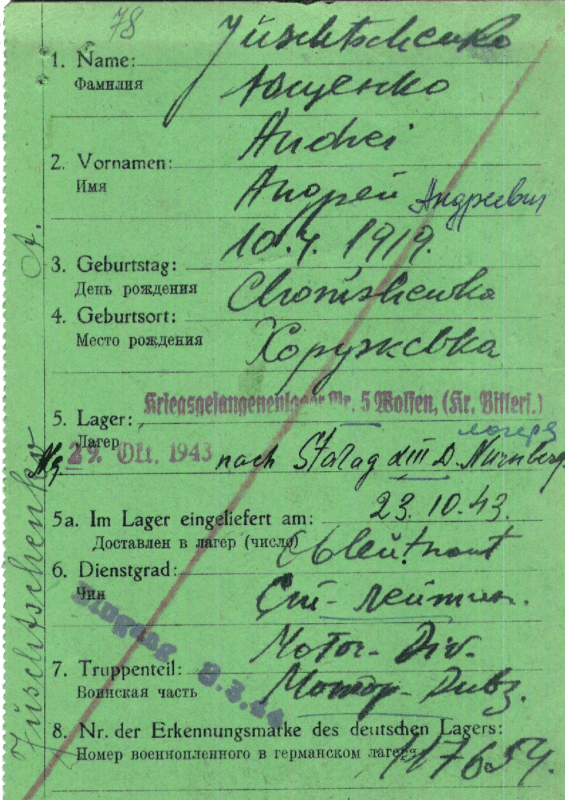 78
Juschtschenko
1. Name:
Фамилия
Ющенко
Andrei
2. Vornamen:
Имя
Андрей Андреевич
10.4. 1919.
3. Geburtstag:
День рождения
4. Geburtsort:
Место рождения
Хоружевка
Kriegsgefangenenlager Nr. 5 Wolfen, (Kr. Bitterf.)
5. Lager:
Лагерь
лагерь
29. Okt. 1943 nach Stalag XIII D. Nürnberg
5a. Im Lager eingeliefert am: 23.10.43.
Доставлен в лагерь (число)
6. Dienstgrad:
Чин
Motor-Div.
7. Truppenteil:
Воинская часть
Мотор-Дивз.
8. Nr. der Erkennungsmarke des deutschen Lagers:
Номер военнопленного в германском лагере
117654.
Juschtschenko A.